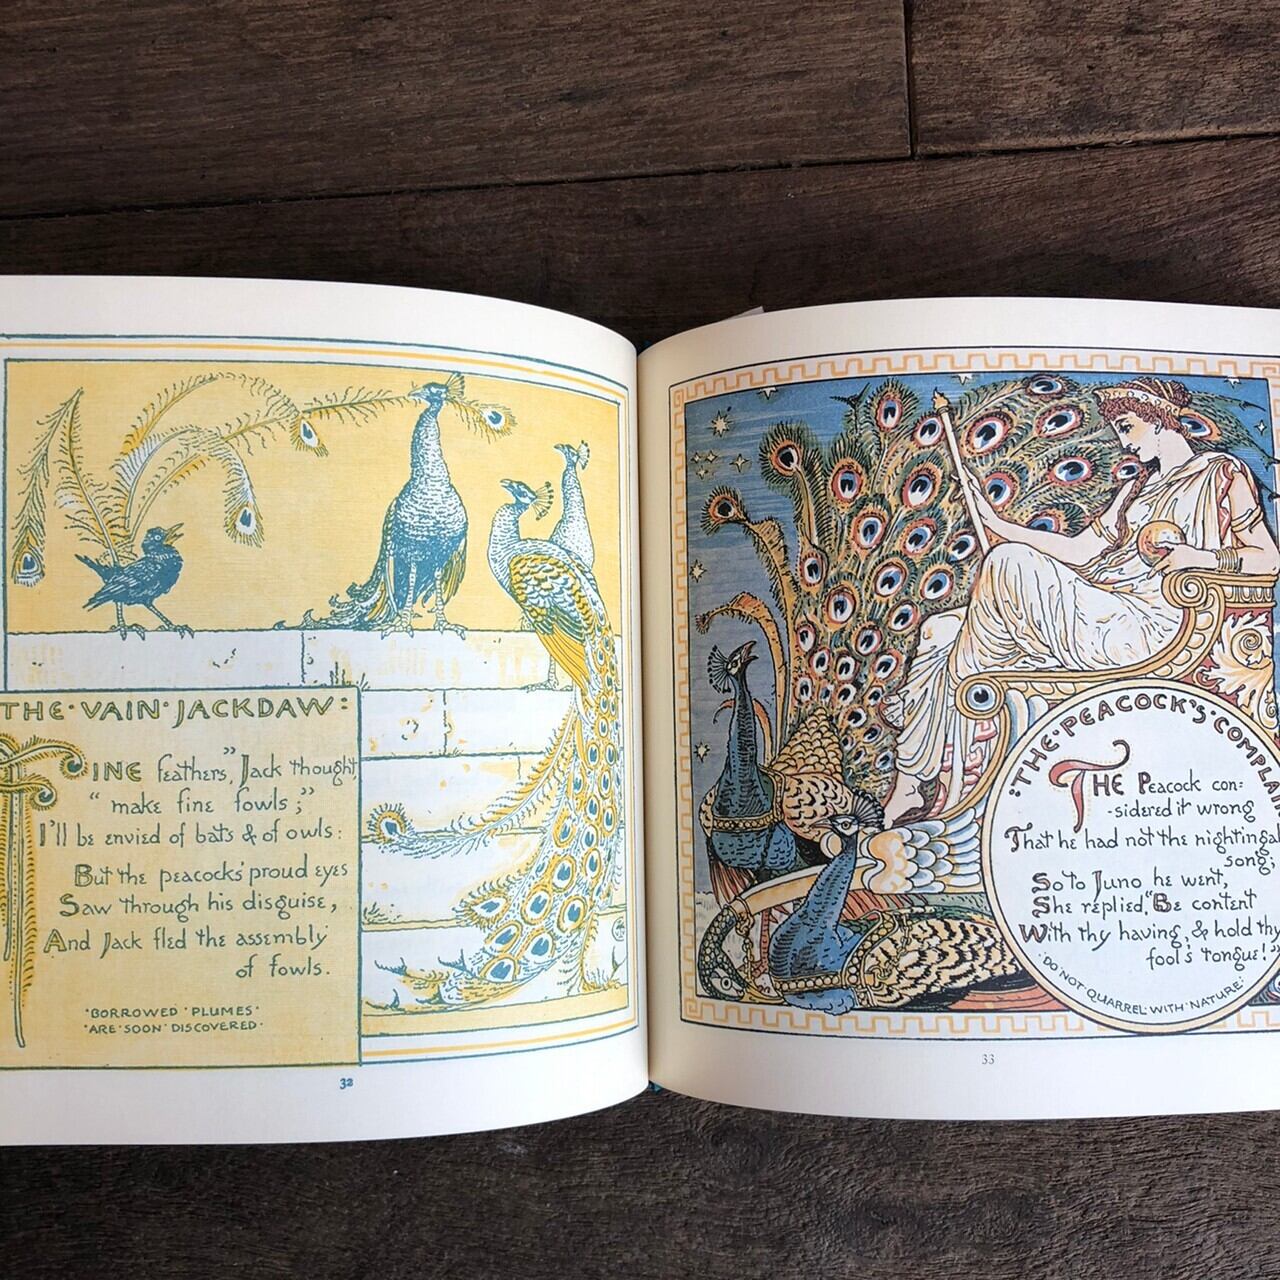 THE·VAIN·JACKDAW:
FINE feathers," Jack thought,
"make fine fowls;"
I'll be envied of bats & of owls:
But the peacocks' proud eyes
Saw through his disguise,
And Jack fled the assembly
of fowls.
·BORROWED·PLUMES·
·ARE·SOON·DISCOVERED·
32
·THE·PEACOCK'S·COMPLAIN
THE Peacock con-
-sidered it wrong
That he had not the nightingal
song;
So to Juno he went,
She replied, "Be content
With thy having, & hold thy
fool's tongue!"
·DO·NOT·QUARREL·WITH·NATURE·
33